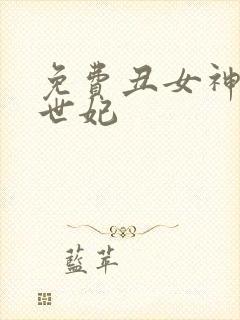 免費丑女神
世妃
藍苹